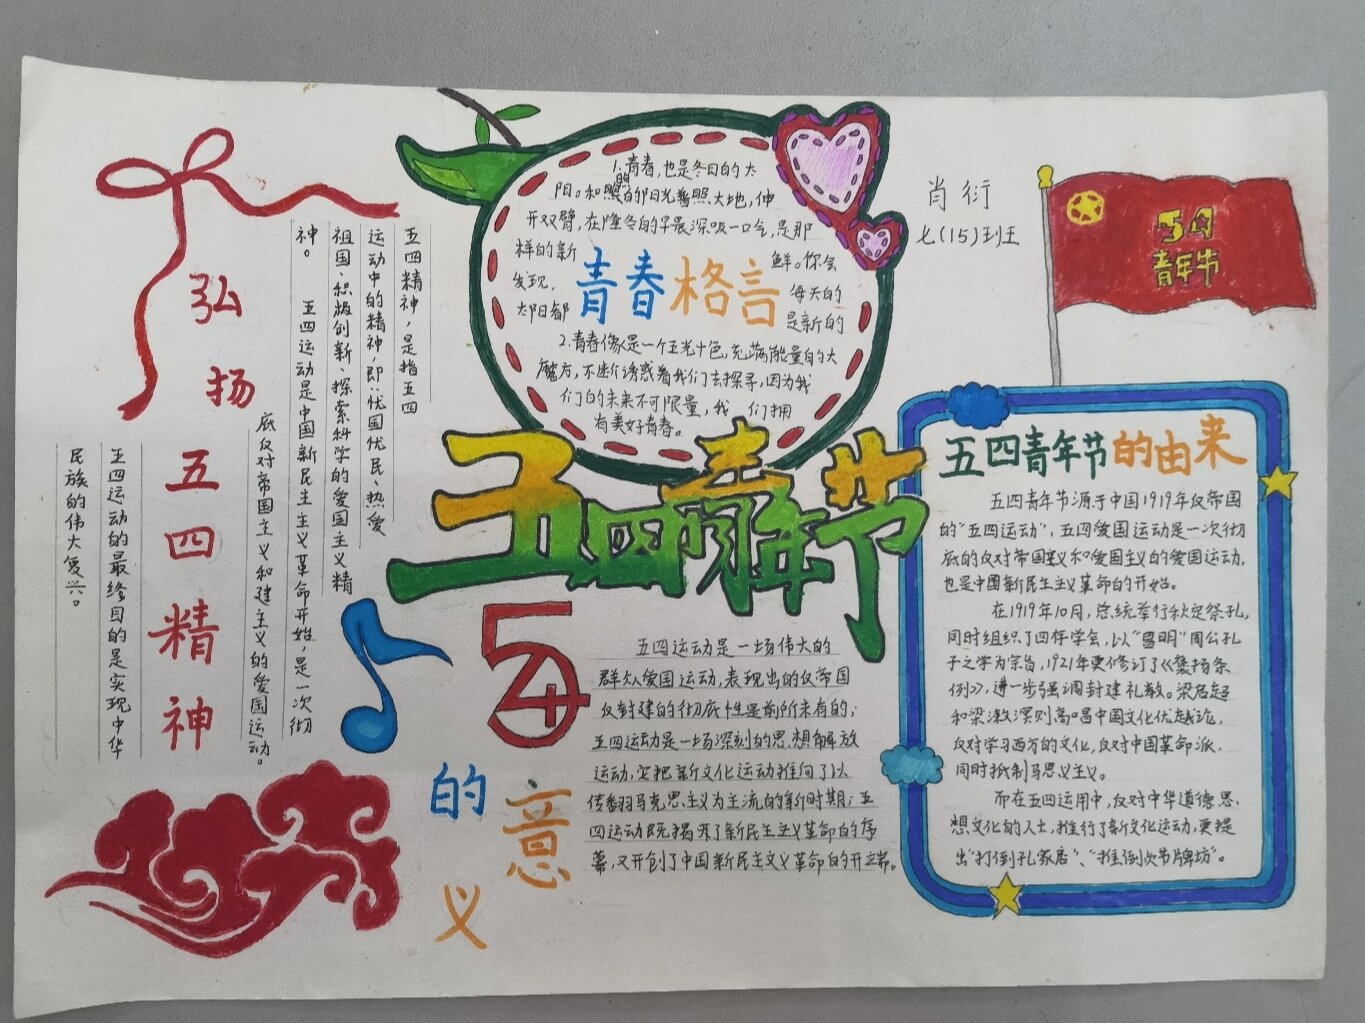 弘扬五四精神
五四精神，是指五四
运动中的精神，即忧国忧民、热爱
祖国、积极创新、探索科学的爱国主义精
神。 五四运动是中国新民主主义革命开始，是一次彻
底反对帝国主义和建主义的爱国运动。
五四运动的最终目的是实现中华
民族的伟大复兴。
1.青春，也是冬日的太
阳。和照的阳光普照大地，伸
开双臂，在隆冬的子最深吸一口气，是那
样的新
鲜。你会
发现，
每天的
都
是新的
青春格言
2.青春像是一个五光十色，充满能量的大
魔方，不断诱惑着我们去探寻，因为我
们的未来不可限量，我 们拥
有美好青春。
肖衍
七(15)班
五四
青年节
五四青年节
五四青年节的由来
五四青年节源于中国1919年反帝国
的“五四运动”，五四爱国运动是一次彻
底的反对帝国主义和爱国主义的爱国运动，
也是中国新民主主义革命的开始。
在1919年10月，总统举行秋定祭孔，
同时组织了四存学会，以“昌明”周公孔
子之学为宗旨，1921年更修订了《褒扬条
例》，进一步强调封建礼教。梁启超
和梁漱溟则高唱中国文化优越论，
反对学习西方的文化，反对中国革命派，
同时抵制马思义主义。
而在五四运用中，反对中华道德思
想文化的人士，推行了新文化运动，更提
出“打倒孔家店”、“推倒次节牌坊”。
54
的意义
五四运动是一场伟大的
群众爱国运动，表现出的反帝国
反封建的彻底性是前所未有的；
五四运动是一场深刻的思想解放
运动，它把新文化运动推向了以
传翻马克思主义为主流的新时期；五
四运动既揭开了新民主主义革命的序
幕，又开创了中国新民主义革命的开端。